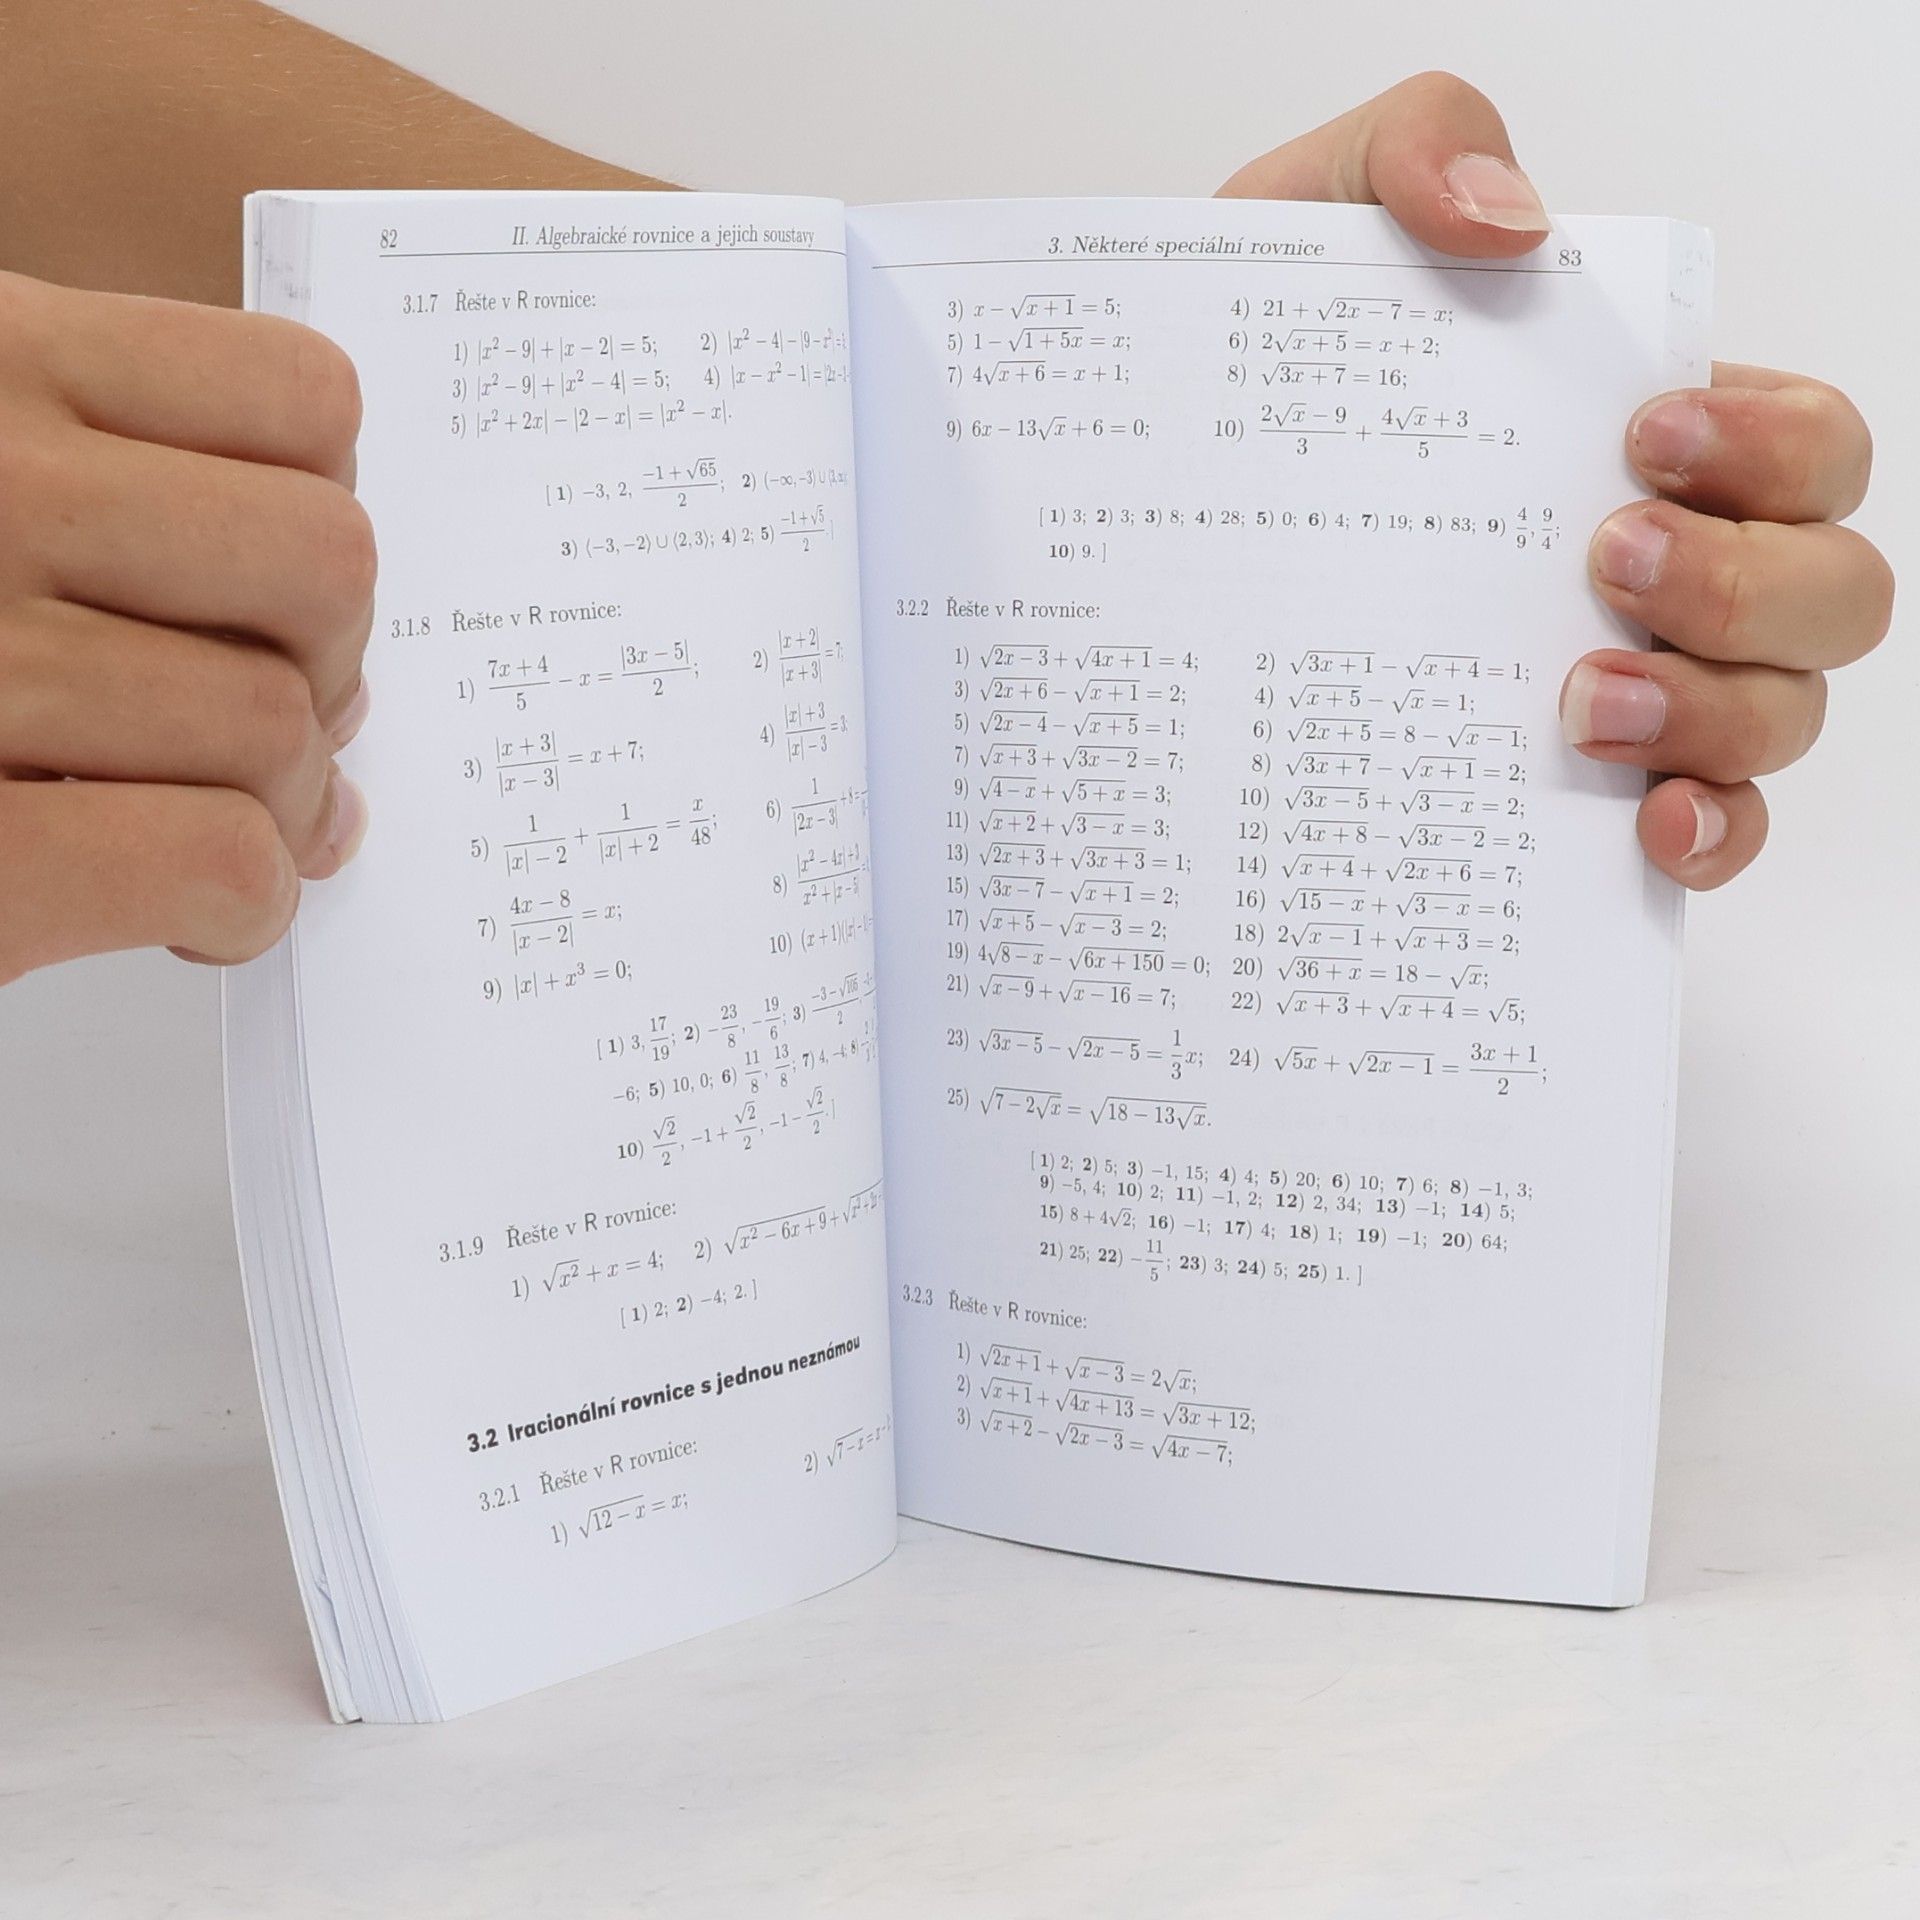 82 II. Algebraické rovnice a jejich soustavy
3.1.7 Řešte v R rovnice:
1) |x² − 9| + |x − 2| = 5; 2) |x² − 4| − |9 − x²| =
3) |x² − 9| + |x² − 4| = 5; 4) |x − x² − 1| = |2x − 1 −
5) |x² + 2x| − |2 − x| = |x² − x|.
[ 1) −3, 2, (−1 + √65)/2; 2) (−∞, −3) ∪ (3,
3) ⟨−3, −2⟩ ∪ ⟨2, 3⟩; 4) 2; 5) (−1 + √5)/2. ]
3.1.8 Řešte v R rovnice:
1) (7x + 4)/5 − x = |3x − 5|/2; 2) |x + 2|/|x + 3| = 7;
3) |x + 3|/|x − 3| = x + 7; 4) (|x| + 3)/(|x| − 3) = 3;
5) 1/(|x| − 2) + 1/(|x| + 2) = x/48; 6) 1/|2x − 3| + 8 =
7) (4x − 8)/|x − 2| = x; 8) (|x² − 4x| + 3)/(x² + |x − 5|)
9) |x| + x³ = 0; 10) (x + 1)(|x| − 1
[ 1) 3, 17/19; 2) −23/8, −19/6; 3) (−3 − √105)/2,
−6; 5) 10, 0; 6) 11/8, 13/8; 7) 4, −4; 8)
10) √2/2, −1 + √2/2, −1 − √2/2. ]
3.1.9 Řešte v R rovnice:
1) √(x²) + x = 4; 2) √(x² − 6x + 9) +
[ 1) 2; 2) −4; 2. ]
3.2 Iracionální rovnice s jednou neznámou
3.2.1 Řešte v R rovnice:
1) √(12 − x) = x; 2) √(7 − x) = x −
3. Některé speciální rovnice 83
3) x − √(x + 1) = 5; 4) 21 + √(2x − 7) = x;
5) 1 − √(1 + 5x) = x; 6) 2√(x + 5) = x + 2;
7) 4√(x + 6) = x + 1; 8) √(3x + 7) = 16;
9) 6x − 13√x + 6 = 0; 10) (2√x − 9)/3 + (4√x + 3)/5 = 2.
[ 1) 3; 2) 3; 3) 8; 4) 28; 5) 0; 6) 4; 7) 19; 8) 83; 9) 4/9, 9/4;
10) 9. ]
3.2.2 Řešte v R rovnice:
1) √(2x − 3) + √(4x + 1) = 4; 2) √(3x + 1) − √(x + 4) = 1;
3) √(2x + 6) − √(x + 1) = 2; 4) √(x + 5) − √x = 1;
5) √(2x − 4) − √(x + 5) = 1; 6) √(2x + 5) = 8 − √(x − 1);
7) √(x + 3) + √(3x − 2) = 7; 8) √(3x + 7) − √(x + 1) = 2;
9) √(4 − x) + √(5 + x) = 3; 10) √(3x − 5) + √(3 − x) = 2;
11) √(x + 2) + √(3 − x) = 3; 12) √(4x + 8) − √(3x − 2) = 2;
13) √(2x + 3) + √(3x + 3) = 1; 14) √(x + 4) + √(2x + 6) = 7;
15) √(3x − 7) − √(x + 1) = 2; 16) √(15 − x) + √(3 − x) = 6;
17) √(x + 5) − √(x − 3) = 2; 18) 2√(x − 1) + √(x + 3) = 2;
19) 4√(8 − x) − √(6x + 150) = 0; 20) √(36 + x) = 18 − √x;
21) √(x − 9) + √(x − 16) = 7; 22) √(x + 3) + √(x + 4) = √5;
23) √(3x − 5) − √(2x − 5) = 1/3 x; 24) √(5x) + √(2x − 1) = (3x + 1)/2;
25) √(7 − 2√x) = √(18 − 13√x).
[ 1) 2; 2) 5; 3) −1, 15; 4) 4; 5) 20; 6) 10; 7) 6; 8) −1, 3;
9) −5, 4; 10) 2; 11) −1, 2; 12) 2, 34; 13) −1; 14) 5;
15) 8 + 4√2; 16) −1; 17) 4; 18) 1; 19) −1; 20) 64;
21) 25; 22) −11/5; 23) 3; 24) 5; 25) 1. ]
3.2.3 Řešte v R rovnice:
1) √(2x + 1) + √(x − 3) = 2√x;
2) √(x + 1) + √(4x + 13) = √(3x + 12);
3) √(x + 2) − √(2x − 3) = √(4x − 7);